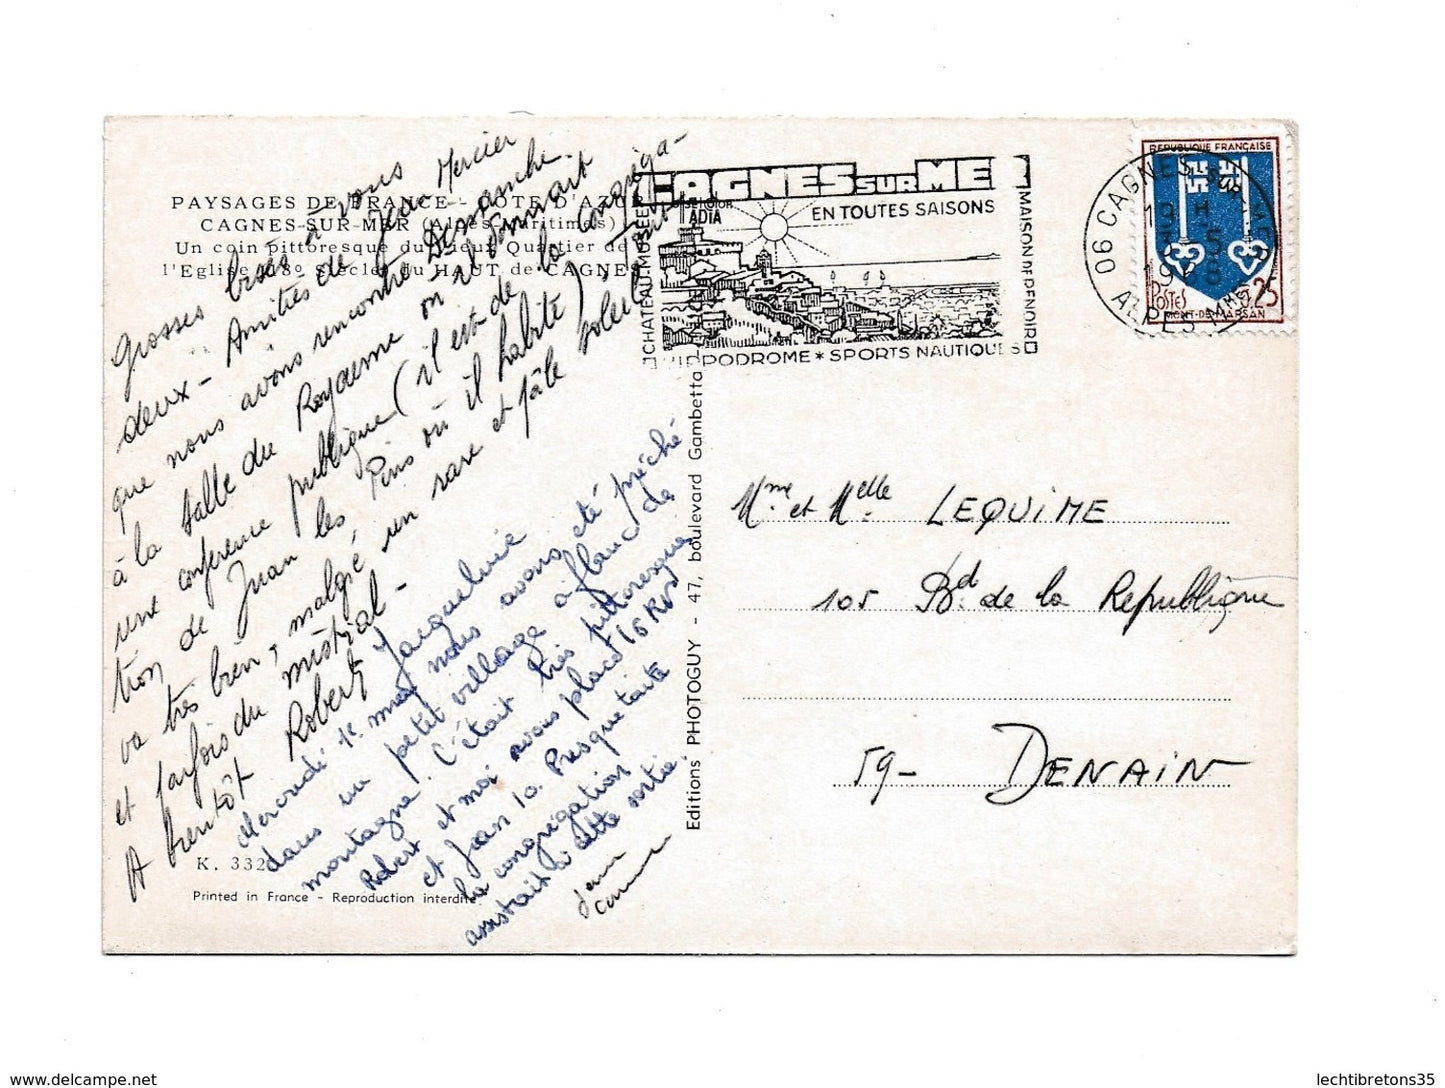 PAYSAGES DE FRANCE - CÔTE D'AZUR
CAGNES-SUR-MER (Alpes-Maritimes)
Un coin pittoresque du Vieux Quartier de
l'Eglise 18º Siècle du HAUT de CAGNES
Grosses bises à vous
deux - Amitiés de Jean Mercier
que nous avons rencontré Dimanche
à la salle du Royaume où il donnait
une conférence publique (il est de la congréga-
tion de Juan les Pins où il habite) - Tout
va très bien, malgré un rare et pâle soleil
et parfois du mistral -
A bientôt Robert Jacqueline
Mercredi 1e mai nous avons été prêché
dans un petit village à flanc de
montagne. C'était très pittoresque
Robert et moi avons placé 16 Rvs
et Jean 10. Presque toute
la congrégation
assistait à cette sortie.
K. 332
Printed in France - Reproduction interdite
Editions PHOTOGUY - 47, boulevard Gambetta
CAGNES SUR MER
EN TOUTES SAISONS
CHATEAU-MUSEE
MAISON DE RENOIR
HIPPODROME * SPORTS NAUTIQUES
06 CAGNES-SUR-MER
ALPES MMES
19 H
REPUBLIQUE FRANÇAISE
0.25
POSTES
MONT-DE-MARSAN
Mme et Melle LEQUIME
105 Bd de la Republique
59 - DENAIN
lechtibretons35